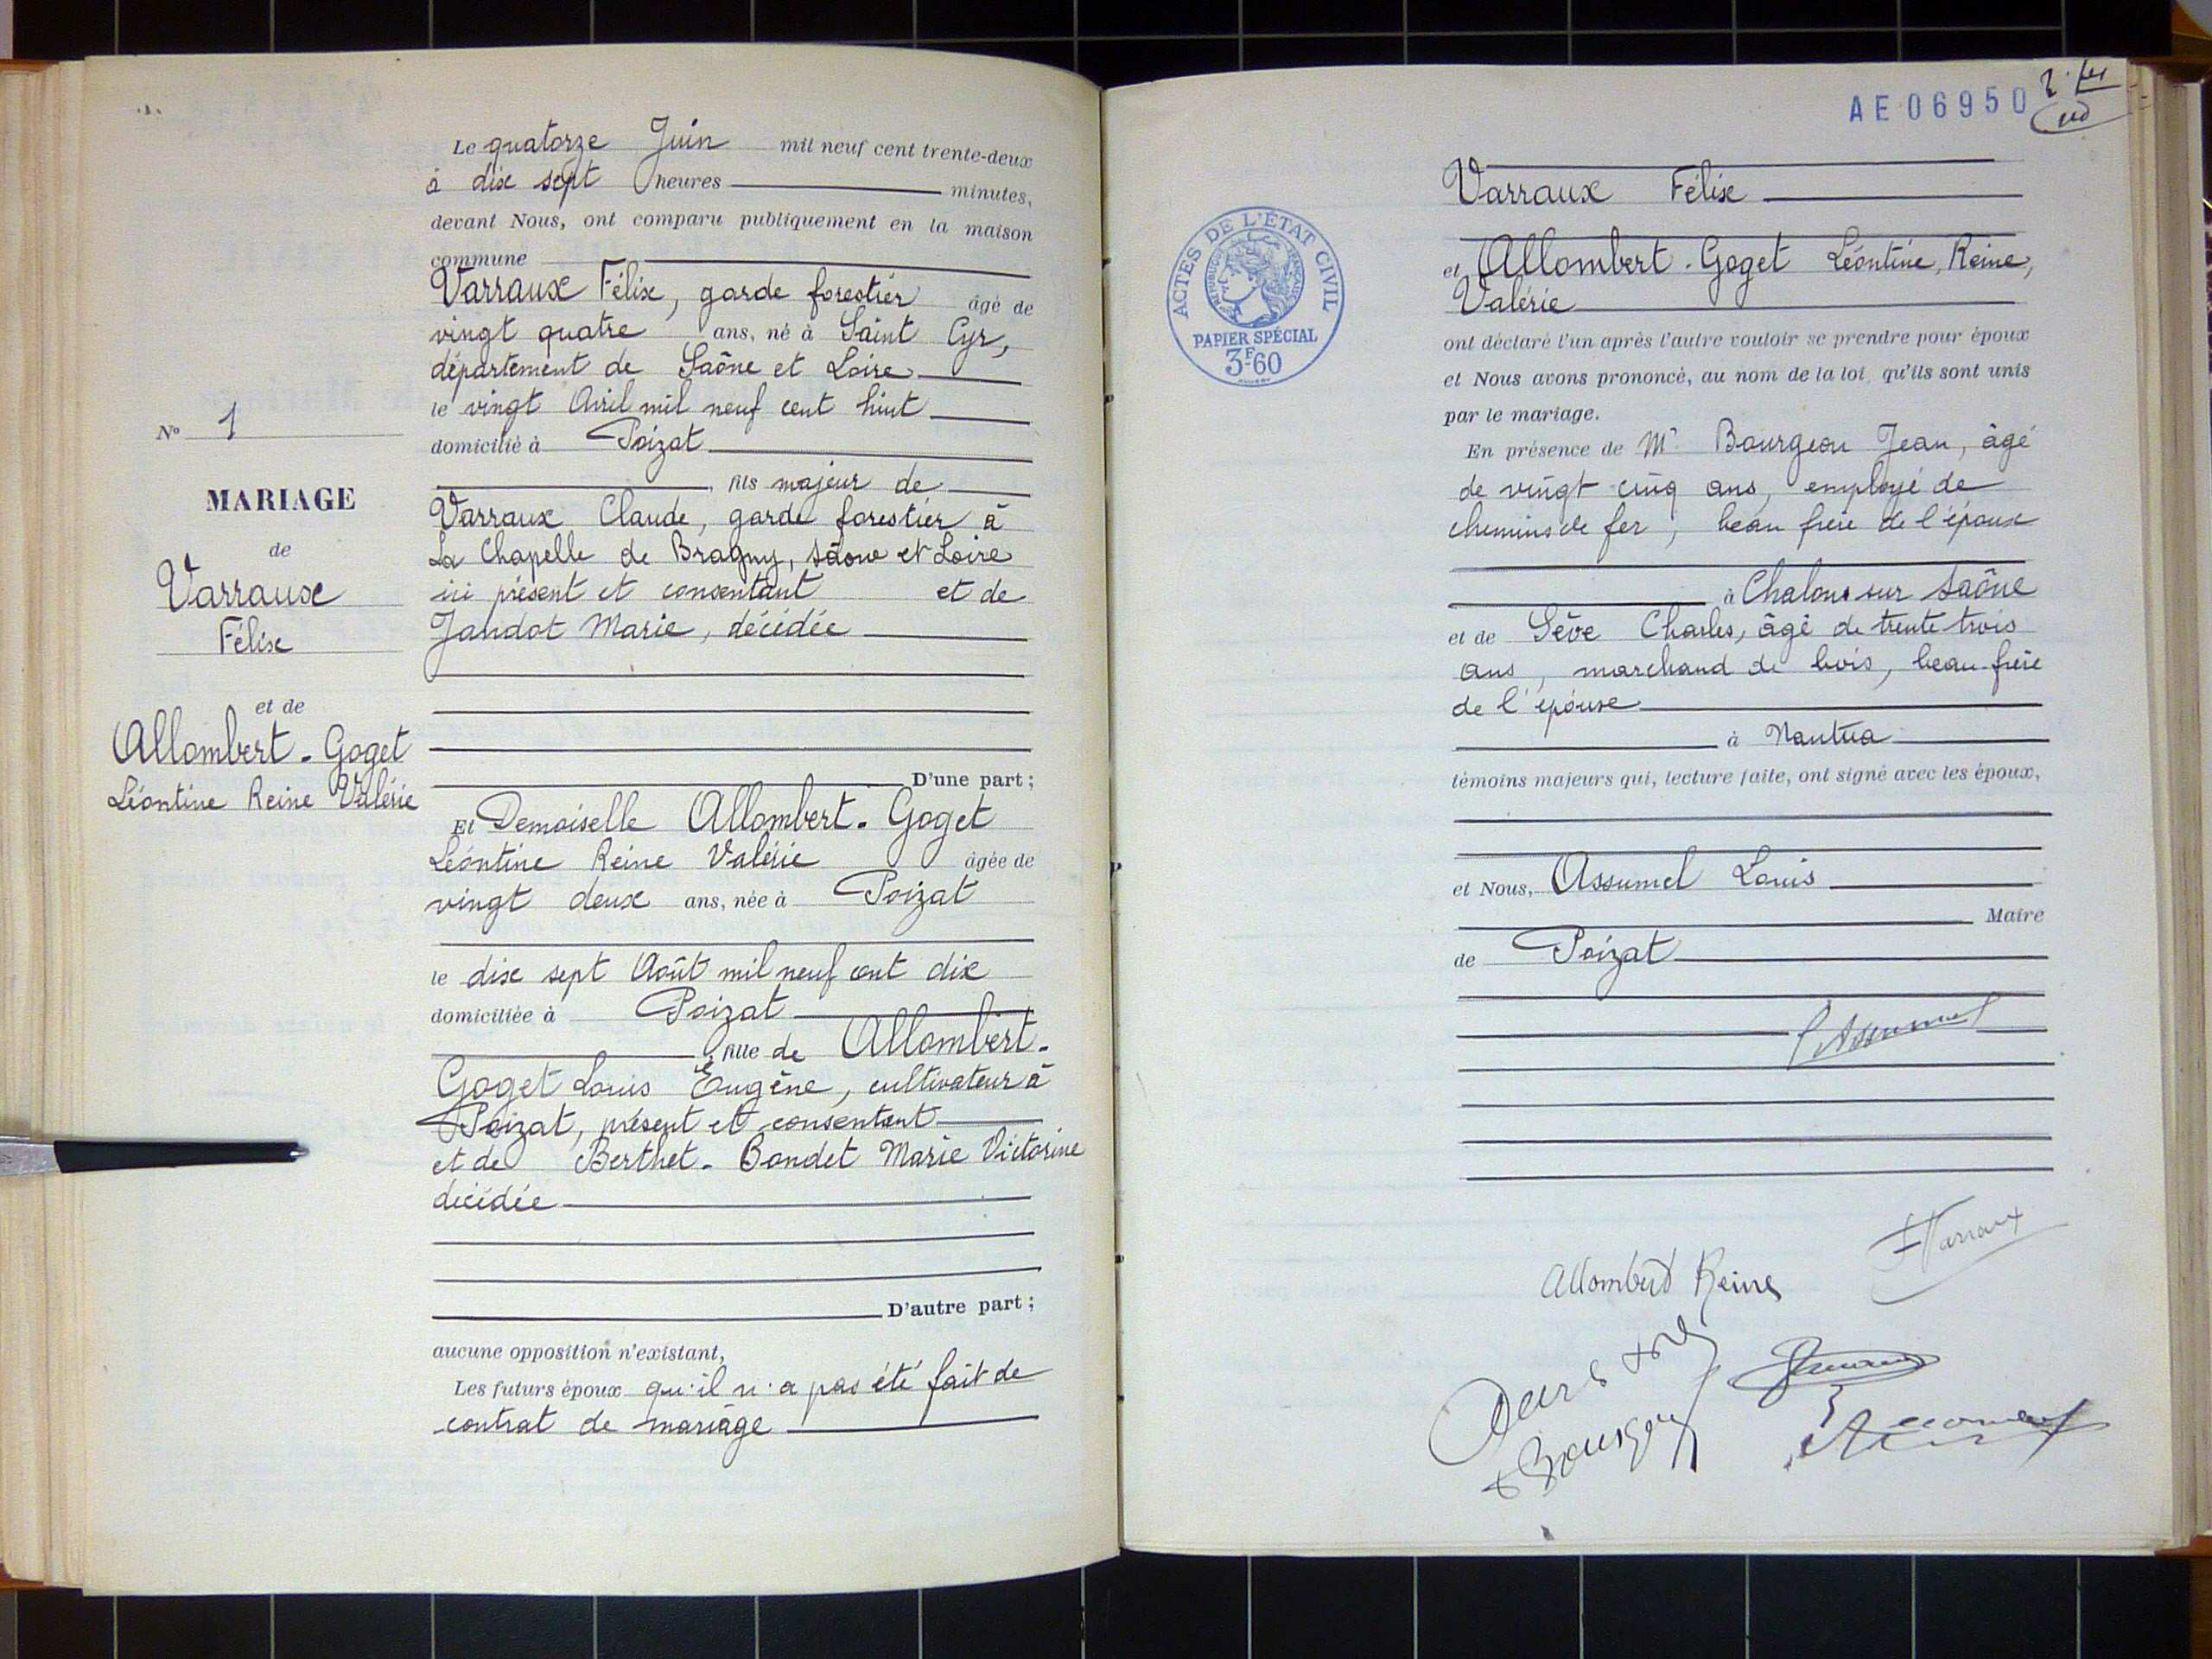 Le quatorze Juin mil neuf cent trente-deux
à dix sept heures minutes,
devant Nous, ont comparu publiquement en la maison
commune
Varraux Félix, garde forestier âgé de
vingt quatre ans, né à Saint Cyr,
département de Saône et Loire
le vingt Avril mil neuf cent huit
domicilié à Poizat
, fils majeur de
Varraux Claude, garde forestier à
La Chapelle de Bragny, Saône et Loire
ici présent et consentant et de
Jandot Marie, décédée
D'une part ;
Et Demoiselle Allombert - Goget
Léontine Reine Valérie âgée de
vingt deux ans, née à Poizat
le dix sept Août mil neuf cent dix
domiciliée à Poizat
, fille de Allombert -
Goget Louis Eugène, cultivateur à
Poizat, présent et consentant
et de Berthet - Bondet Marie Victorine
décédée
D'autre part ;
aucune opposition n'existant,
Les futurs époux qu'il n'a pas été fait de
contrat de mariage
No 1
MARIAGE
de
Varraux
Félix
et de
Allombert - Goget
Léontine Reine Valérie
AE 06950
ACTES DE L'ÉTAT CIVIL
PAPIER SPÉCIAL
3F60
Varraux Félix
et Allombert - Goget Léontine, Reine,
Valérie
ont déclaré l'un après l'autre vouloir se prendre pour époux
et Nous avons prononcé, au nom de la loi, qu'ils sont unis
par le mariage.
En présence de Mr Bourgeon Jean, âgé
de vingt cinq ans, employé de
chemins de fer, beau frère de l'époux
à Chalon sur Saône
et de Sève Charles, âgé de trente trois
ans, marchand de bois, beau-frère
de l'épouse
à Nantua
témoins majeurs qui, lecture faite, ont signé avec les époux,
et Nous, Assumel Louis
Maire
de Poizat
Allombert Reine
F Varraux